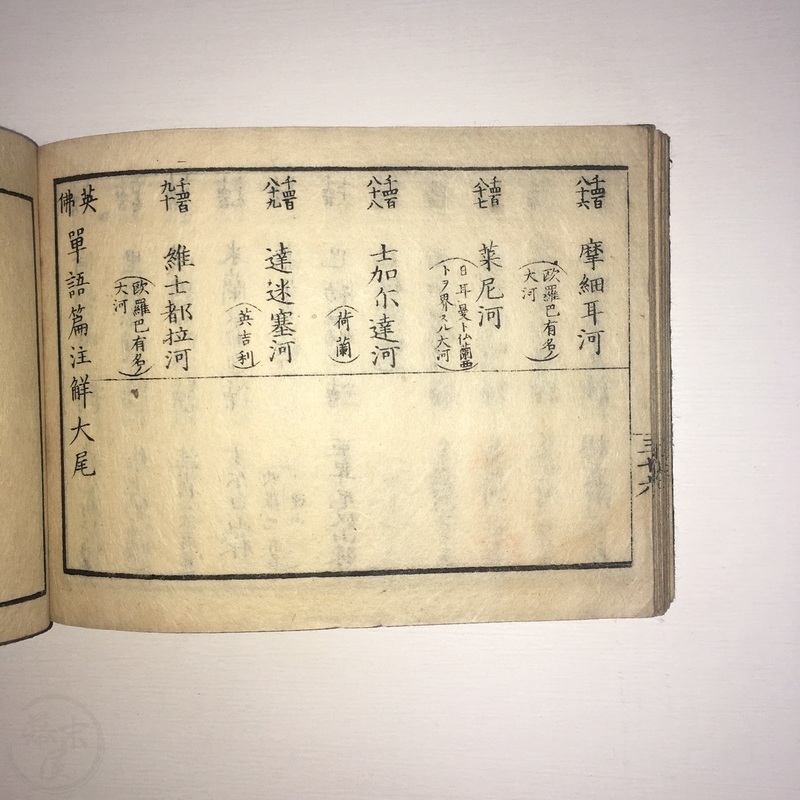 千四百八十六
摩細耳河
(歐羅巴有名ノ大河)
千四百八十七
萊尼河
(日耳曼ト仏蘭西トヲ界スル大河)
千四百八十八
士加尓達河
(荷蘭)
千四百八十九
達迷塞河
(英吉利)
千四百九十
維士都拉河
(歐羅巴有名ノ大河)
英佛單語篇注觧大尾
三十六